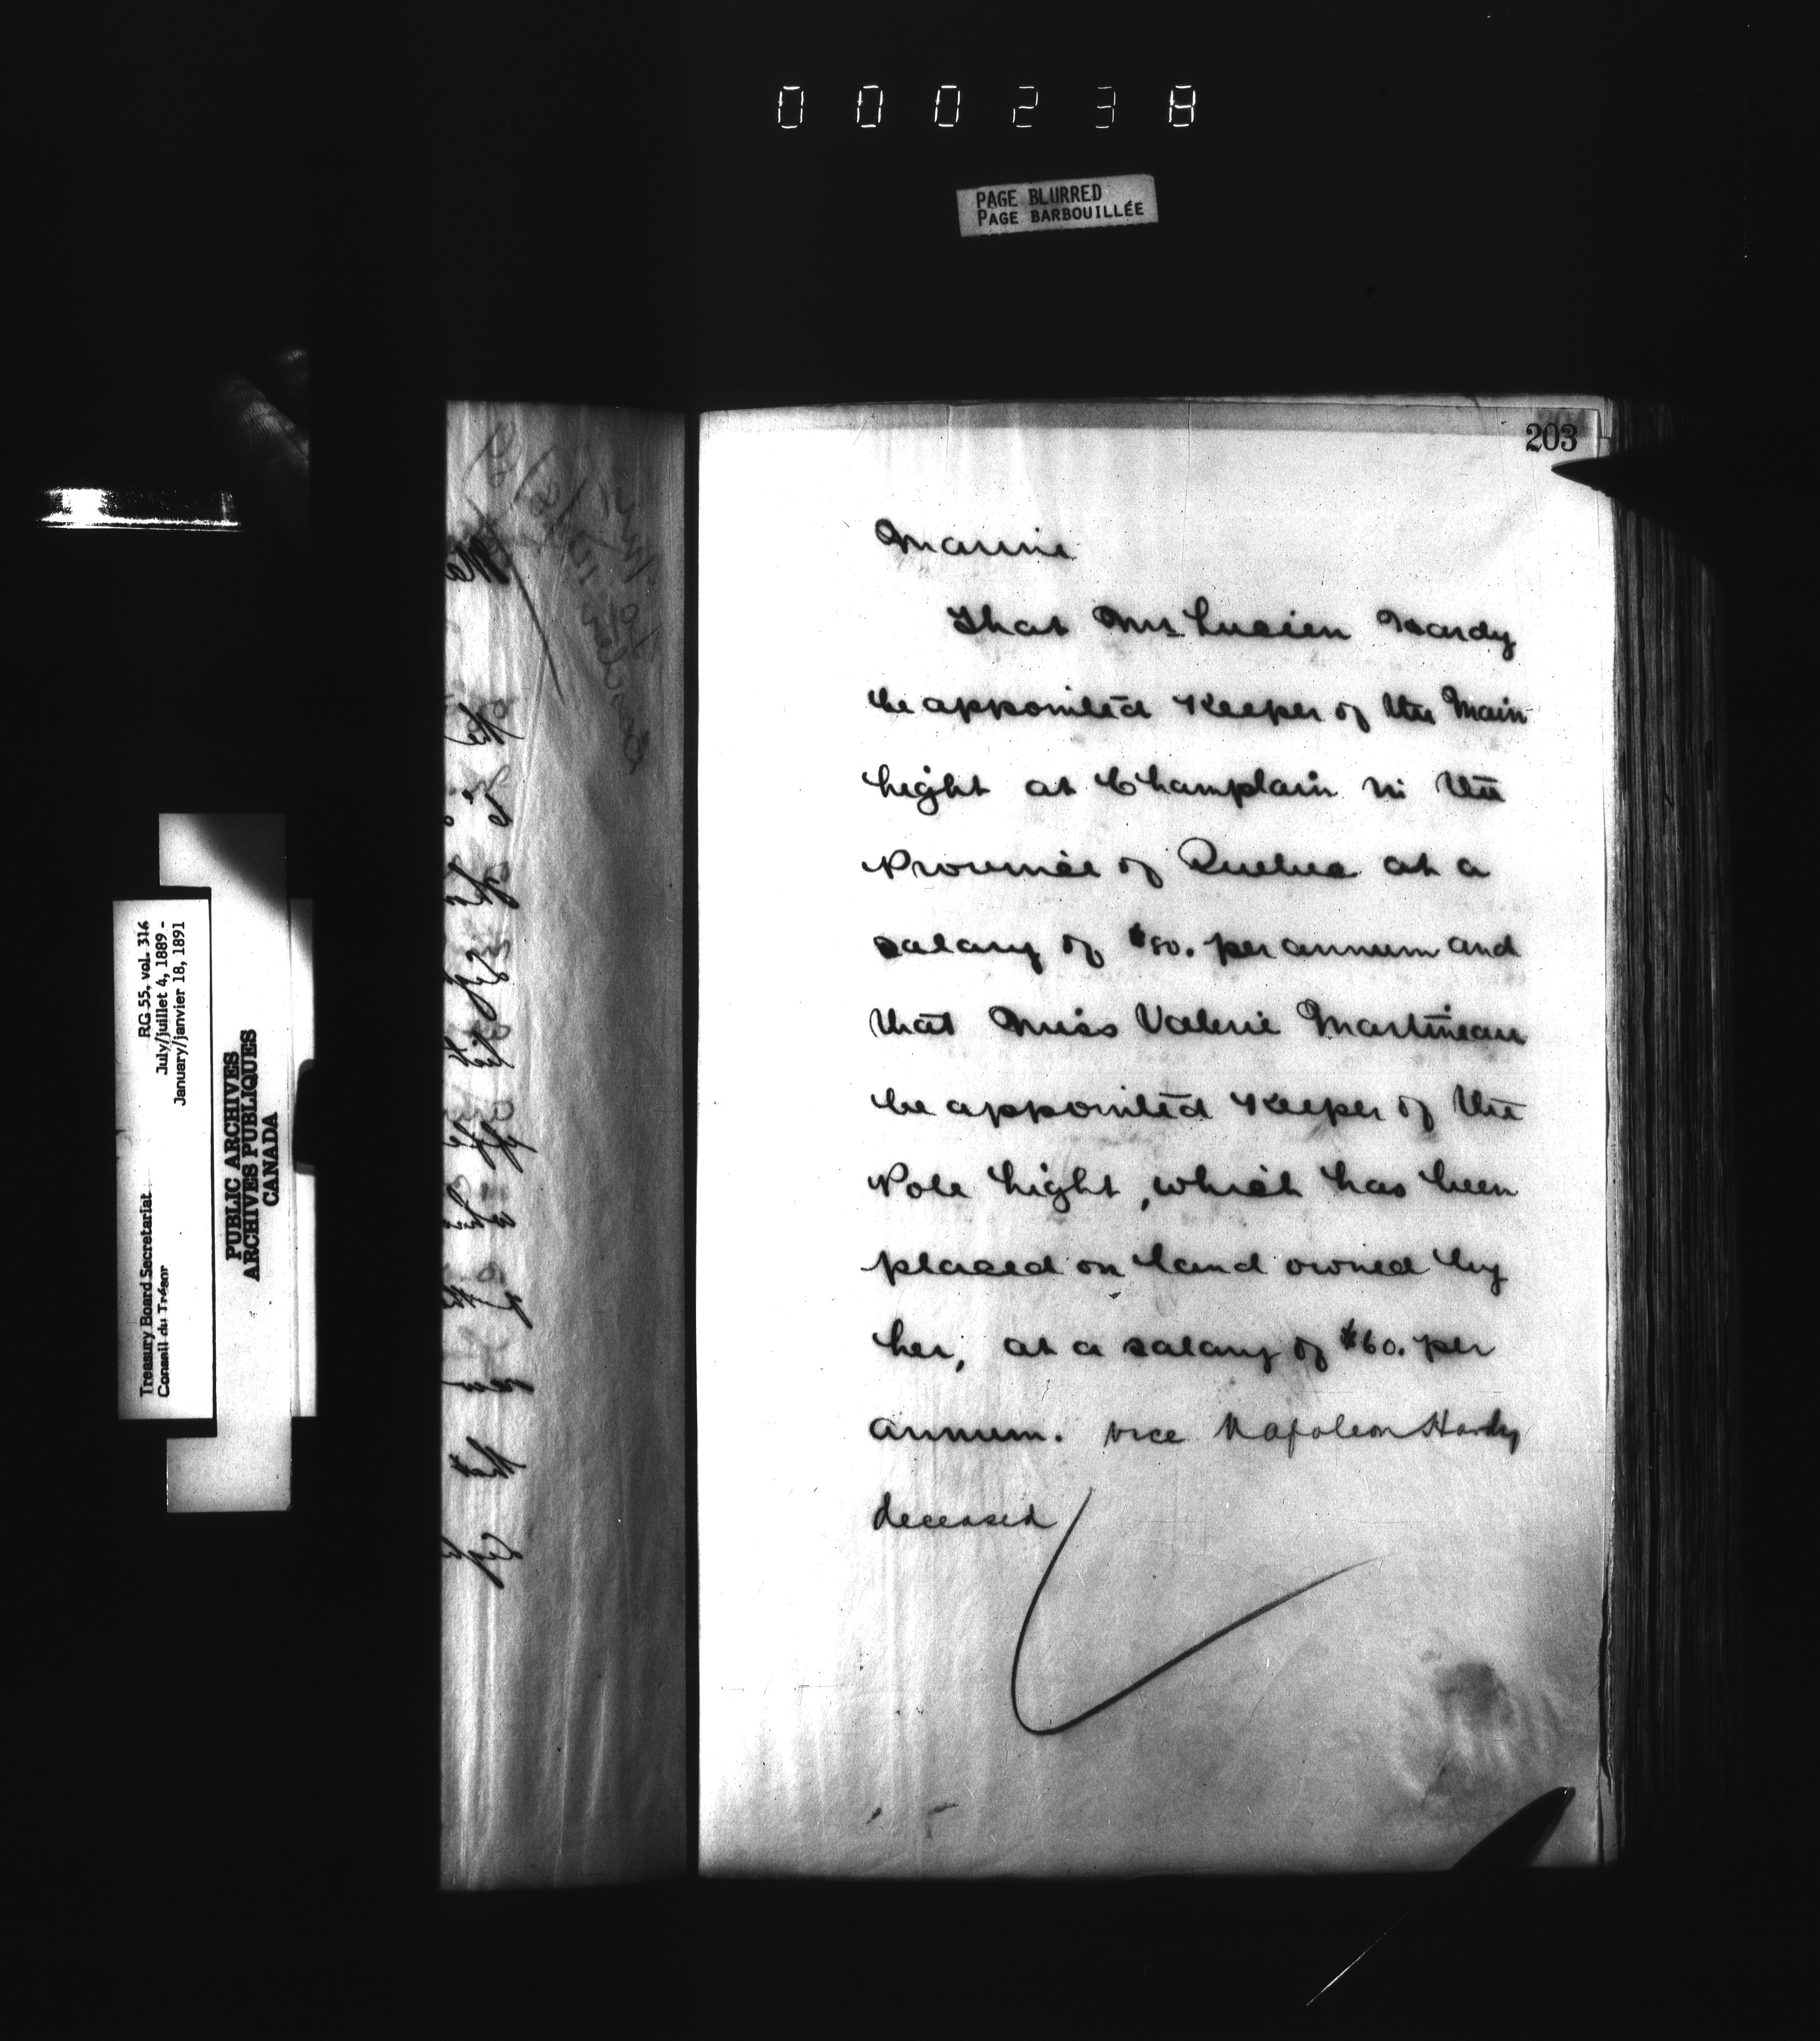 000238
PAGE BLURRED
PAGE BARBOUILLÉE
203
Marine
That Mr Lucien Hardy
be appointed Keeper of the Main
Light at Champlain in the
Province of Quebec at a
salary of $80. per annum and
that Miss Valerie Martineau
be appointed Keeper of the
Pole Light, which has been
placed on land owned by
her, at a salary of $60. per
annum. vice Napoleon Hardy
deceased
Treasury Board Secretariat RG 55, vol. 316
Conseil du Trésor July/juillet 4, 1889 -
January/janvier 18, 1891
PUBLIC ARCHIVES
ARCHIVES PUBLIQUES
CANADA